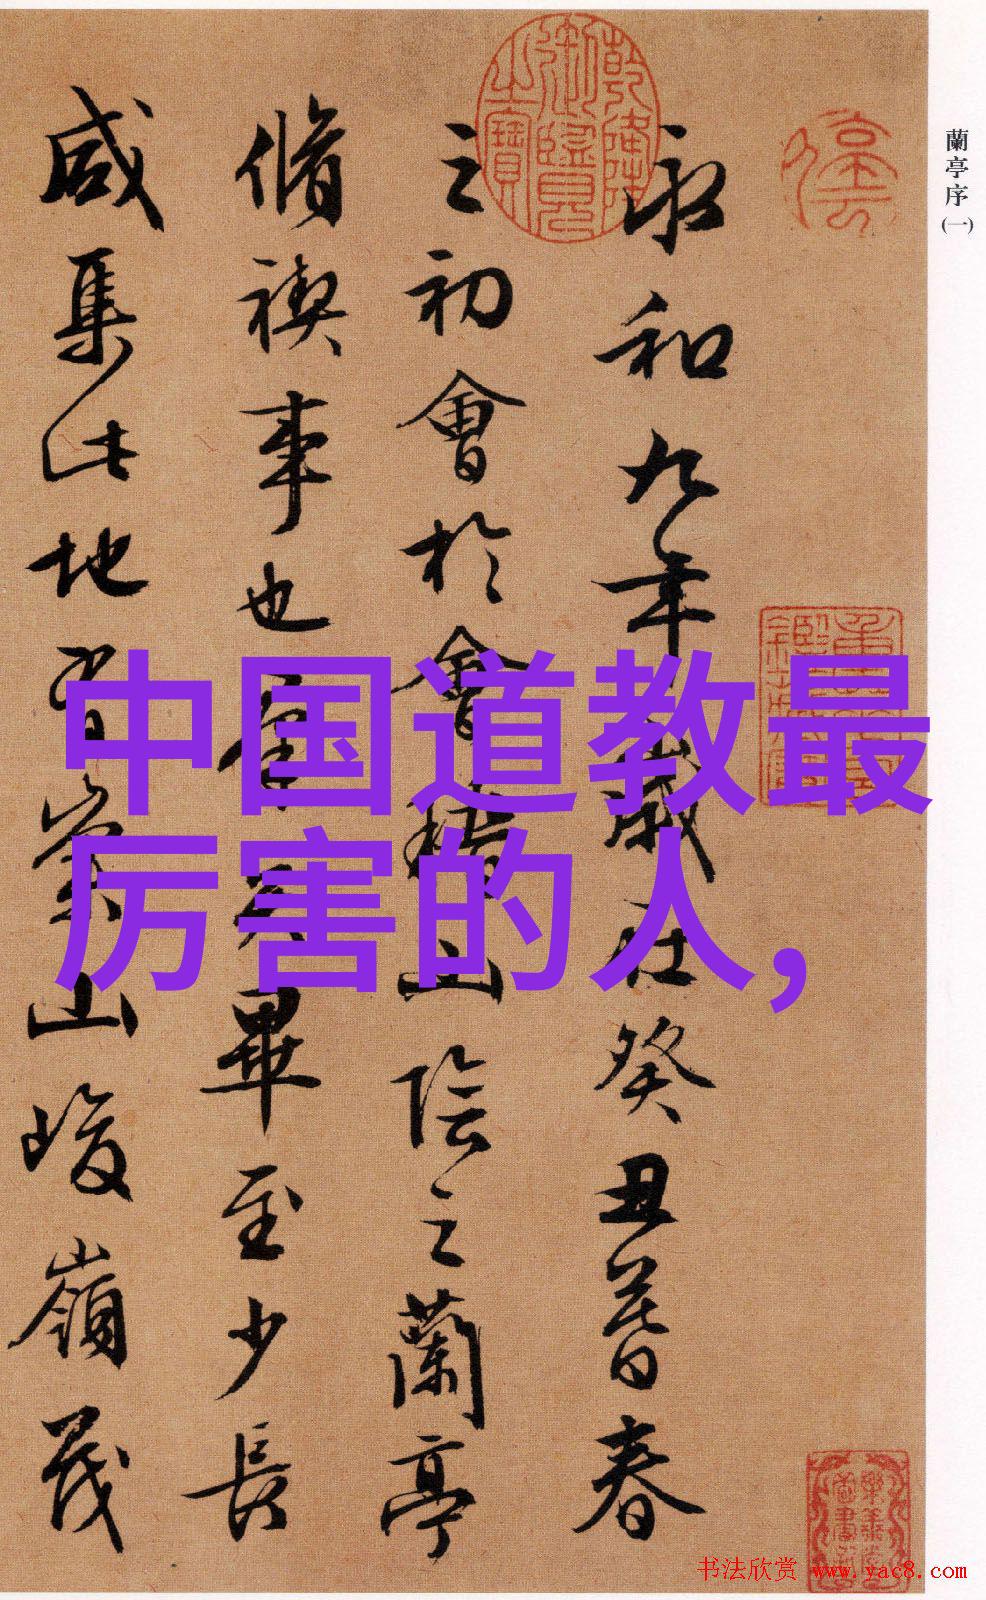 蘭亭序(一)
永和九年歲在癸丑暮春
之初會於會稽山陰之蘭亭
脩禊事也羣賢畢至少長
咸集此地有崇山峻嶺茂
中国道教最
厉害的人,
乾隆御覽之寶
书法欣赏 www.yac8.com